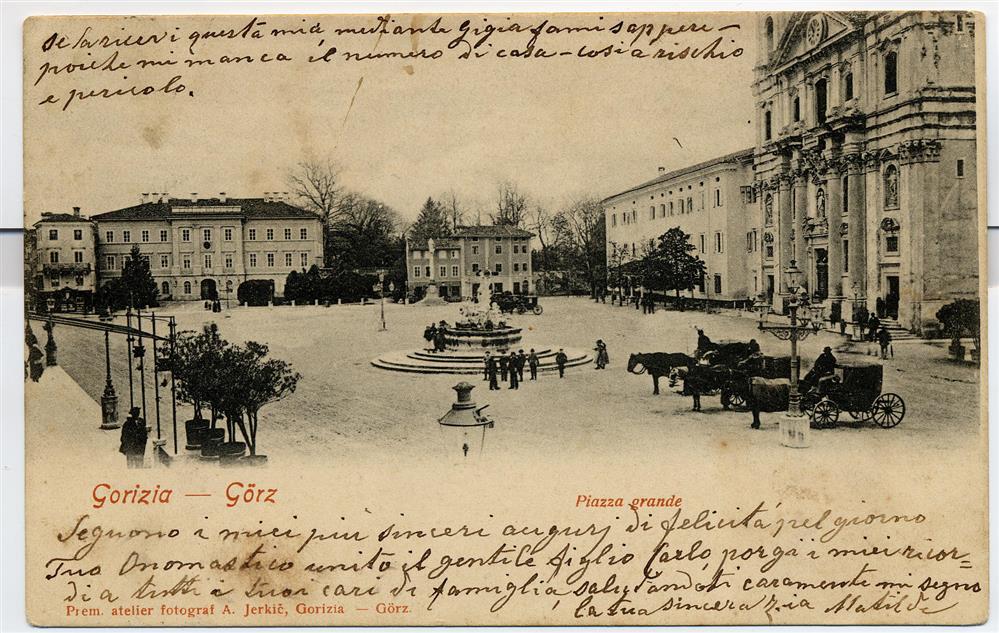 se la ricevi questa mia mediante Gigia fami sappere-
poiche mi manca il numero di casa - cosi a rischio
e pericolo.
Gorizia — Görz
Piazza grande
Seguono i miei più sinceri augurj di felicità pel giorno
Tuo Onomastico unito il gentile figlio Carlo, porga i miei ricor-
di a tutti i tuoi cari di famiglia, salutandoti caramente mi segno
la tua sincera zia Matilde
Prem. atelier fotograf A. Jerkič, Gorizia — Görz.